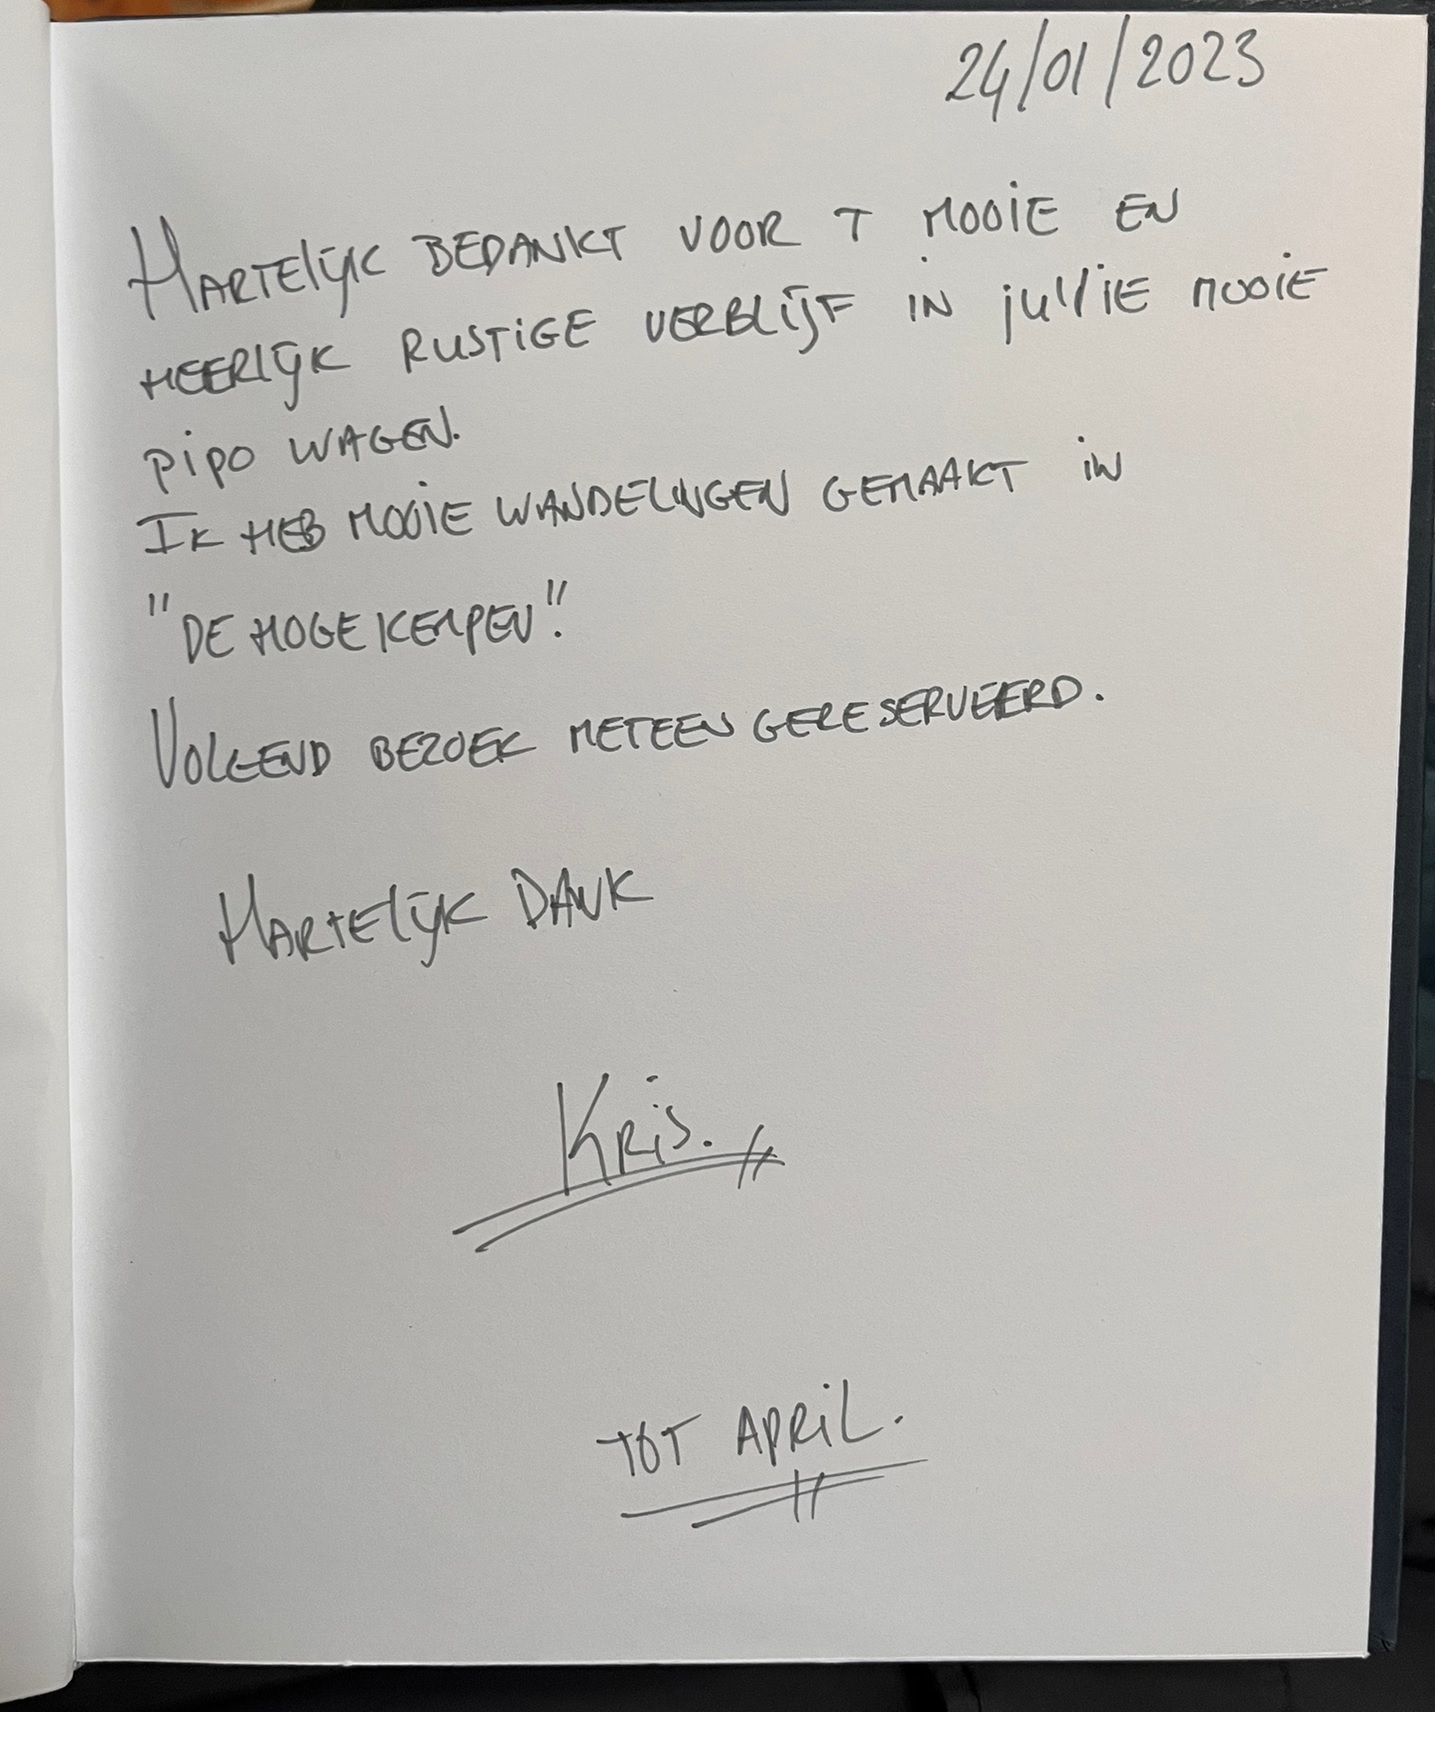 24/01/2023
HARTELIJK BEDANKT VOOR T MOOIE EN
HEERLIJK RUSTIGE VERBLIJF IN jullie MOOIE
PIPO WAGEN.
IK HEB MOOIE WANDELINGEN GEMAAKT IN
"DE HOGE KEMPEN".
VOLGEND BEZOEK METEEN GERESERVEERD.
HARTELIJK DANK
KRIS.
TOT APRIL.